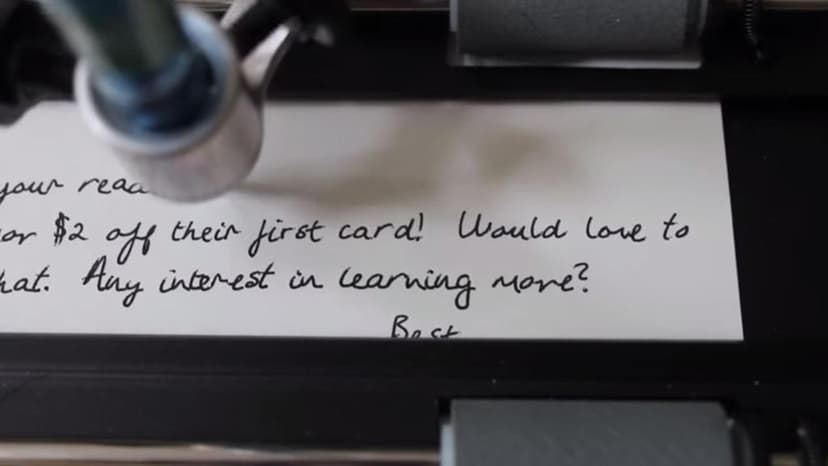 your
or $2 off their first card! Would love to
hat. Any interest in learning more?
Best